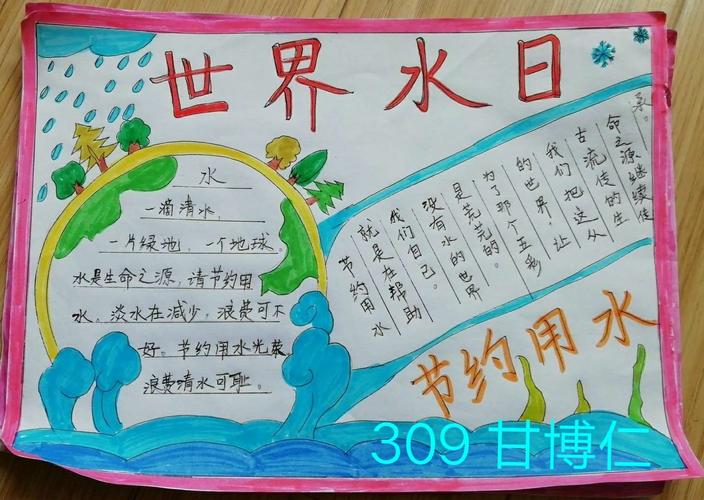 世界水日
水
一滴清水，
一片绿地，一个地球。
水是生命之源，请节约用
水。淡水在减少，浪费可不
好。节约用水光荣，
浪费清水可耻。
节约用水
就是在帮助
我们自己。
没有水的世界
是荒芜的。
为了那个五彩
的世界，让
我们把这从
古流传的生
命之源继续传
承。
节约用水
309 甘博仁